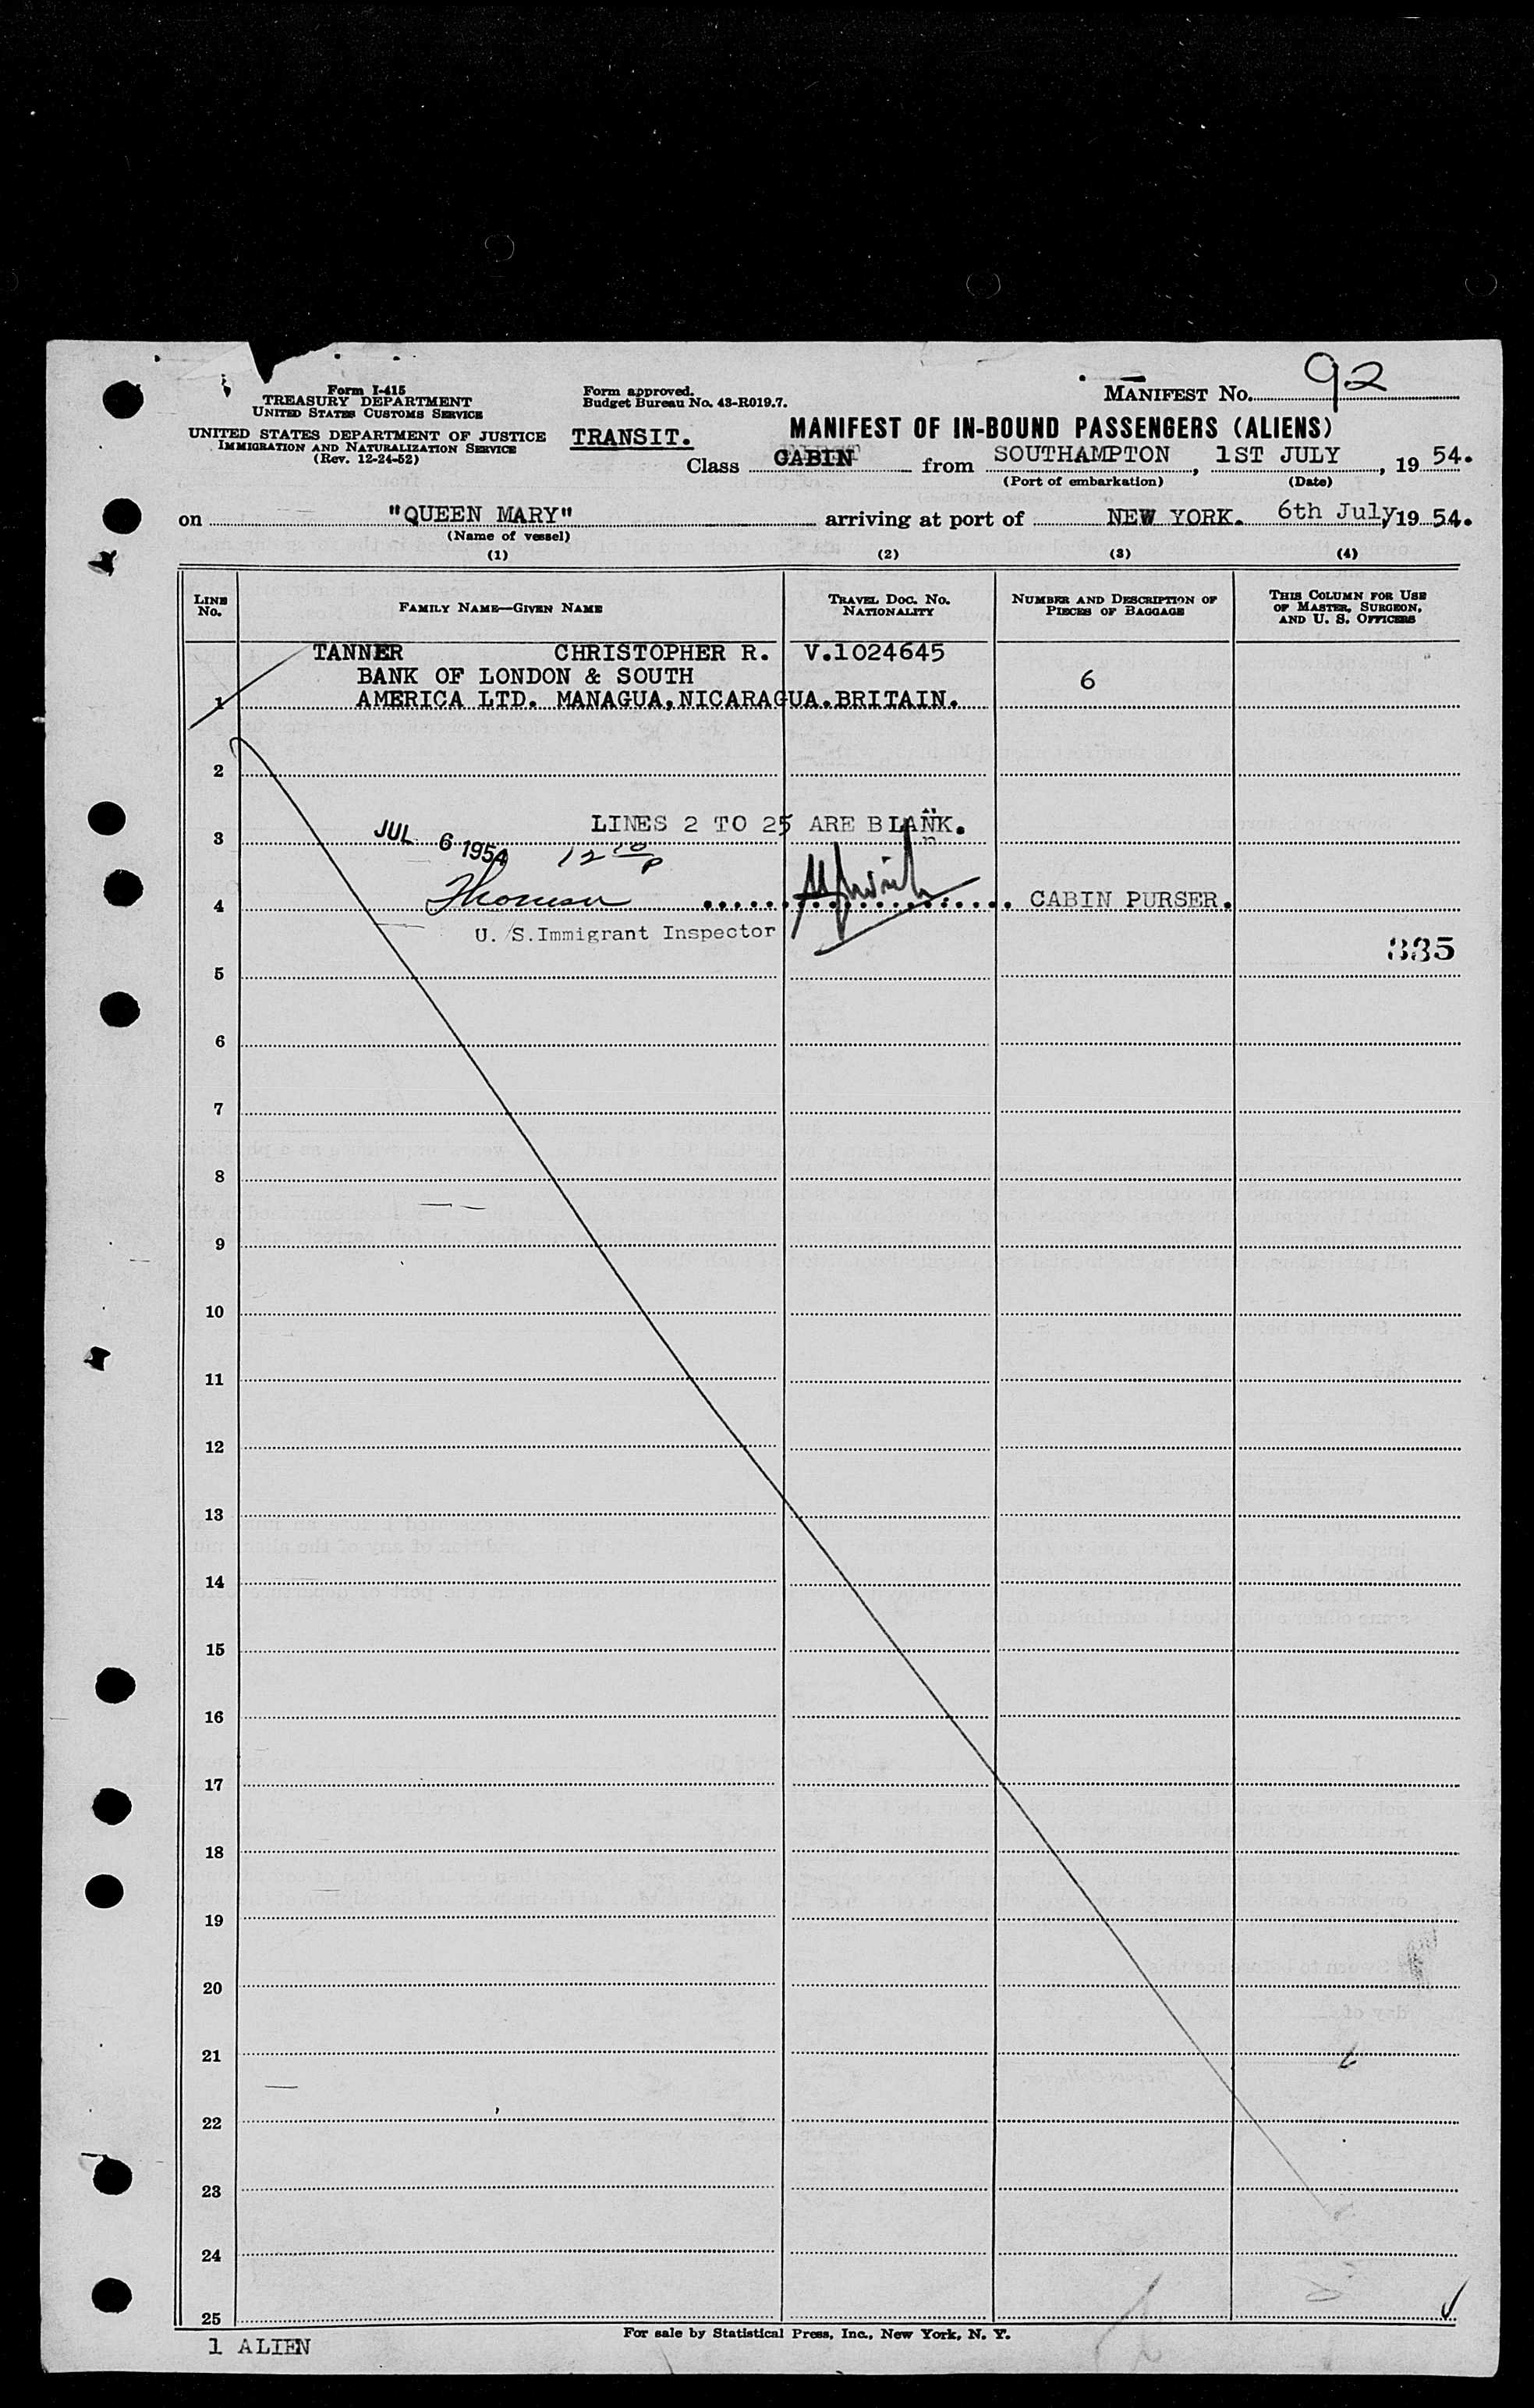 MANIFEST NO. 92
Form I-415
TREASURY DEPARTMENT
UNITED STATES CUSTOMS SERVICE
UNITED STATES DEPARTMENT OF JUSTICE
IMMIGRATION AND NATURALIZATION SERVICE
(Rev. 12-24-52)
Form approved.
Budget Bureau No. 43-R019.7.
TRANSIT.
MANIFEST OF IN-BOUND PASSENGERS (ALIENS)
Class CABIN from SOUTHAMPTON, 1ST JULY, 19 54.
(Port of embarkation) (Date)
on "QUEEN MARY" arriving at port of NEW YORK. 6th July, 19 54.
(Name of vessel)
(1) (2) (3) (4)
LINE NO. FAMILY NAME—GIVEN NAME TRAVEL DOC. NO. NATIONALITY NUMBER AND DESCRIPTION OF PIECES OF BAGGAGE THIS COLUMN FOR USE OF MASTER, SURGEON, AND U. S. OFFICERS
TANNER CHRISTOPHER R. V.1024645
BANK OF LONDON & SOUTH 6
1 AMERICA LTD. MANAGUA, NICARAGUA. BRITAIN.
2
LINES 2 TO 25 ARE BLANK.
3 JUL 6 1954 12 10 P
4 Thomson CABIN PURSER.
U. S. Immigrant Inspector
335
5
6
7
8
9
10
11
12
13
14
15
16
17
18
19
20
21
22
23
24
25
1 ALIEN
For sale by Statistical Press, Inc., New York, N. Y.